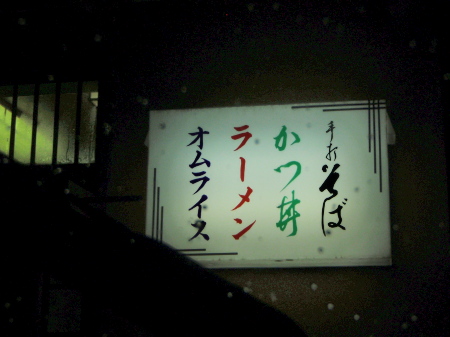 手打そば
かつ丼
ラーメン
オムライス